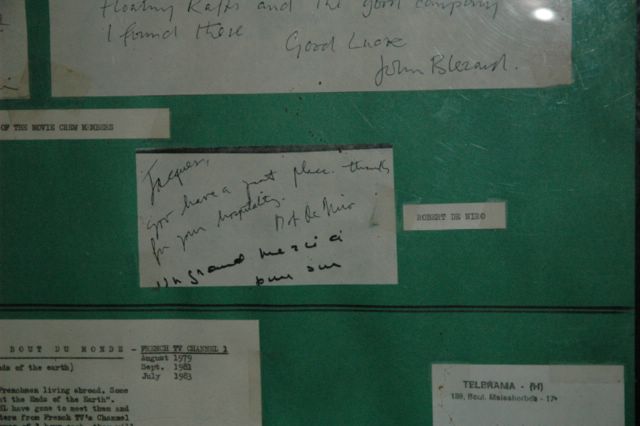 Floating Rafts and the good company
I found there
Good Luck
John Blezard.
OF THE MOVIE CREW MEMBERS
Jacques,
you have a great place. thanks
for your hospitality.
De Niro
un grand merci
ROBERT DE NIRO
BOUT DU MONDE - FRENCH TV CHANNEL 1
August 1979
nds of the earth) Sept. 1981
July 1983
Frenchmen living abroad. Some
at the Ends of the Earth".
have gone to meet them and
ters from French TV's Channel
TELERAMA - (H)
129, Boul. Malesherbes - 17